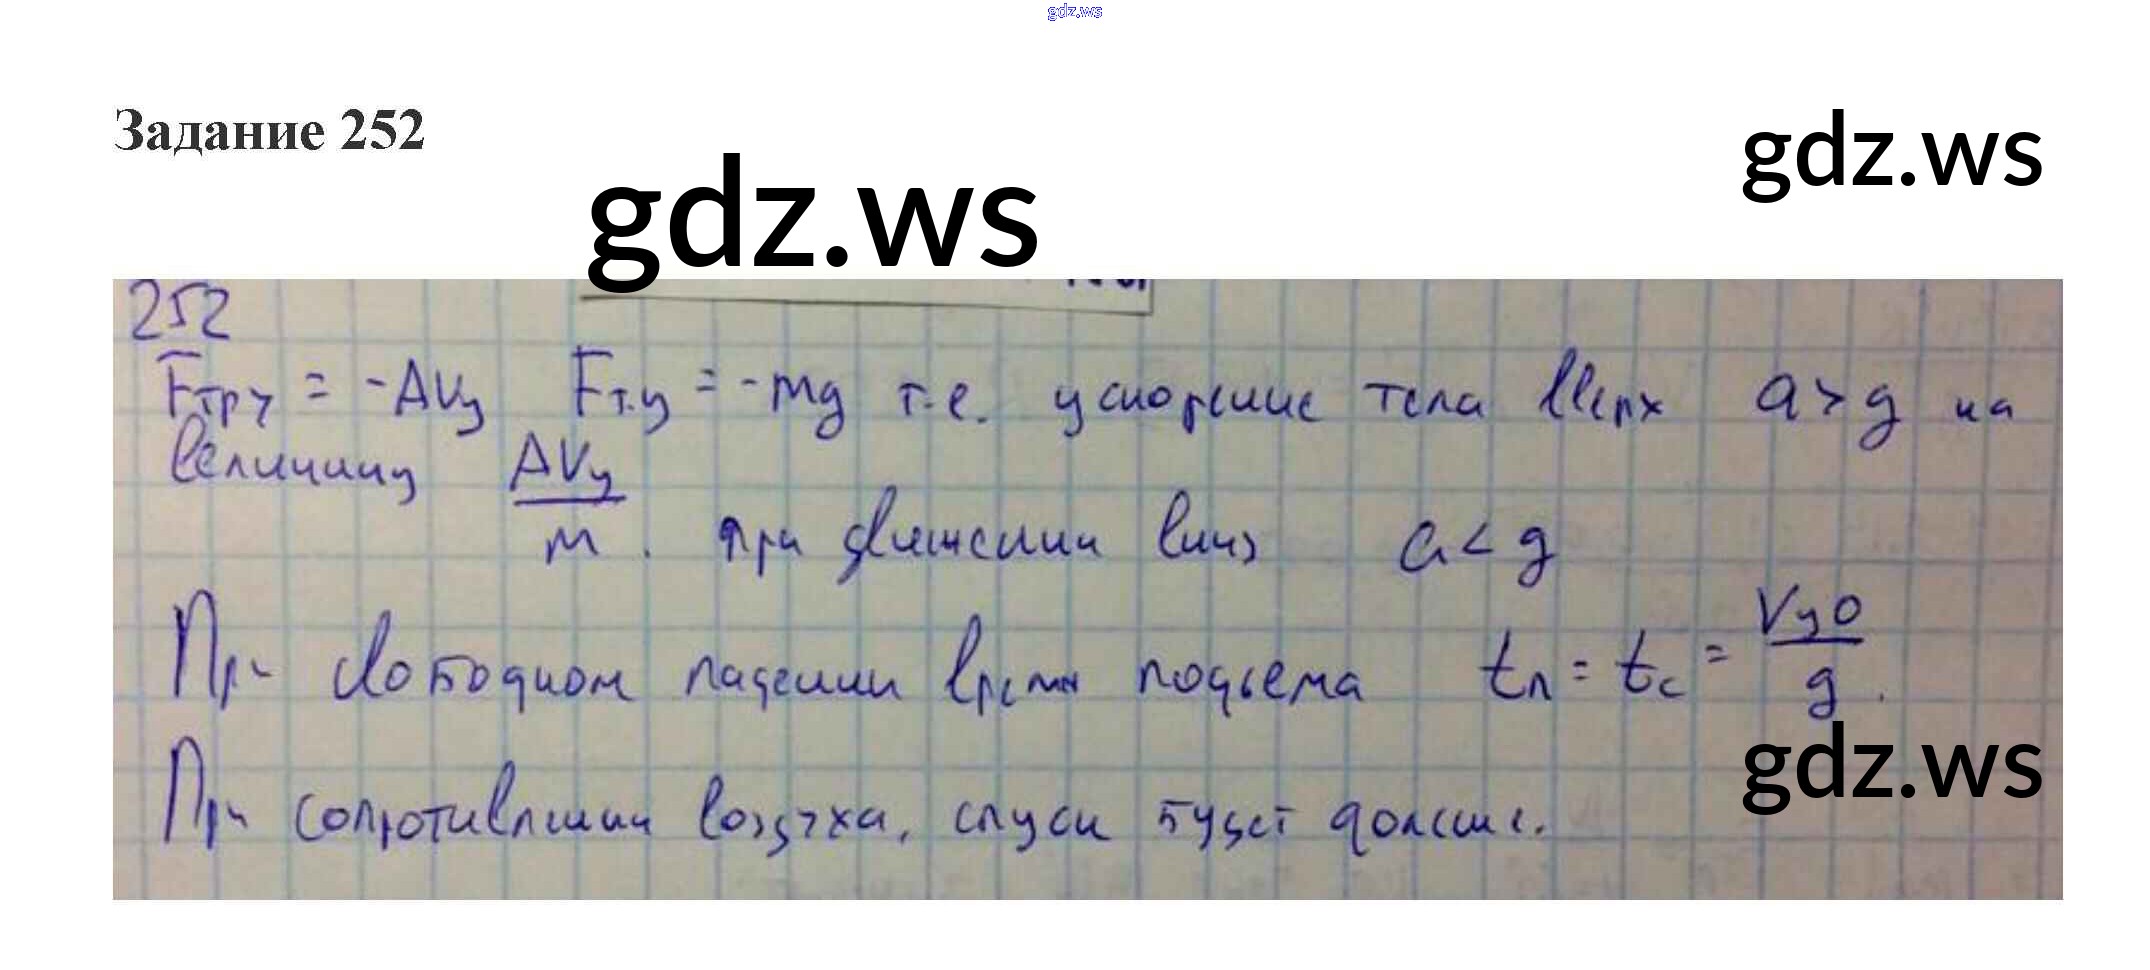 gdz.ws
Задание 252
gdz.ws
gdz.ws
252
Fтру = -AVy Fт.у = -mg т.е. ускорение тела вверх a > g на
величину AVy/m . при движении вниз a < g
При свободном падении время подъема tп = tс = Vy0/g .
gdz.ws
При сопротивлении воздуха, спуск будет дольше.